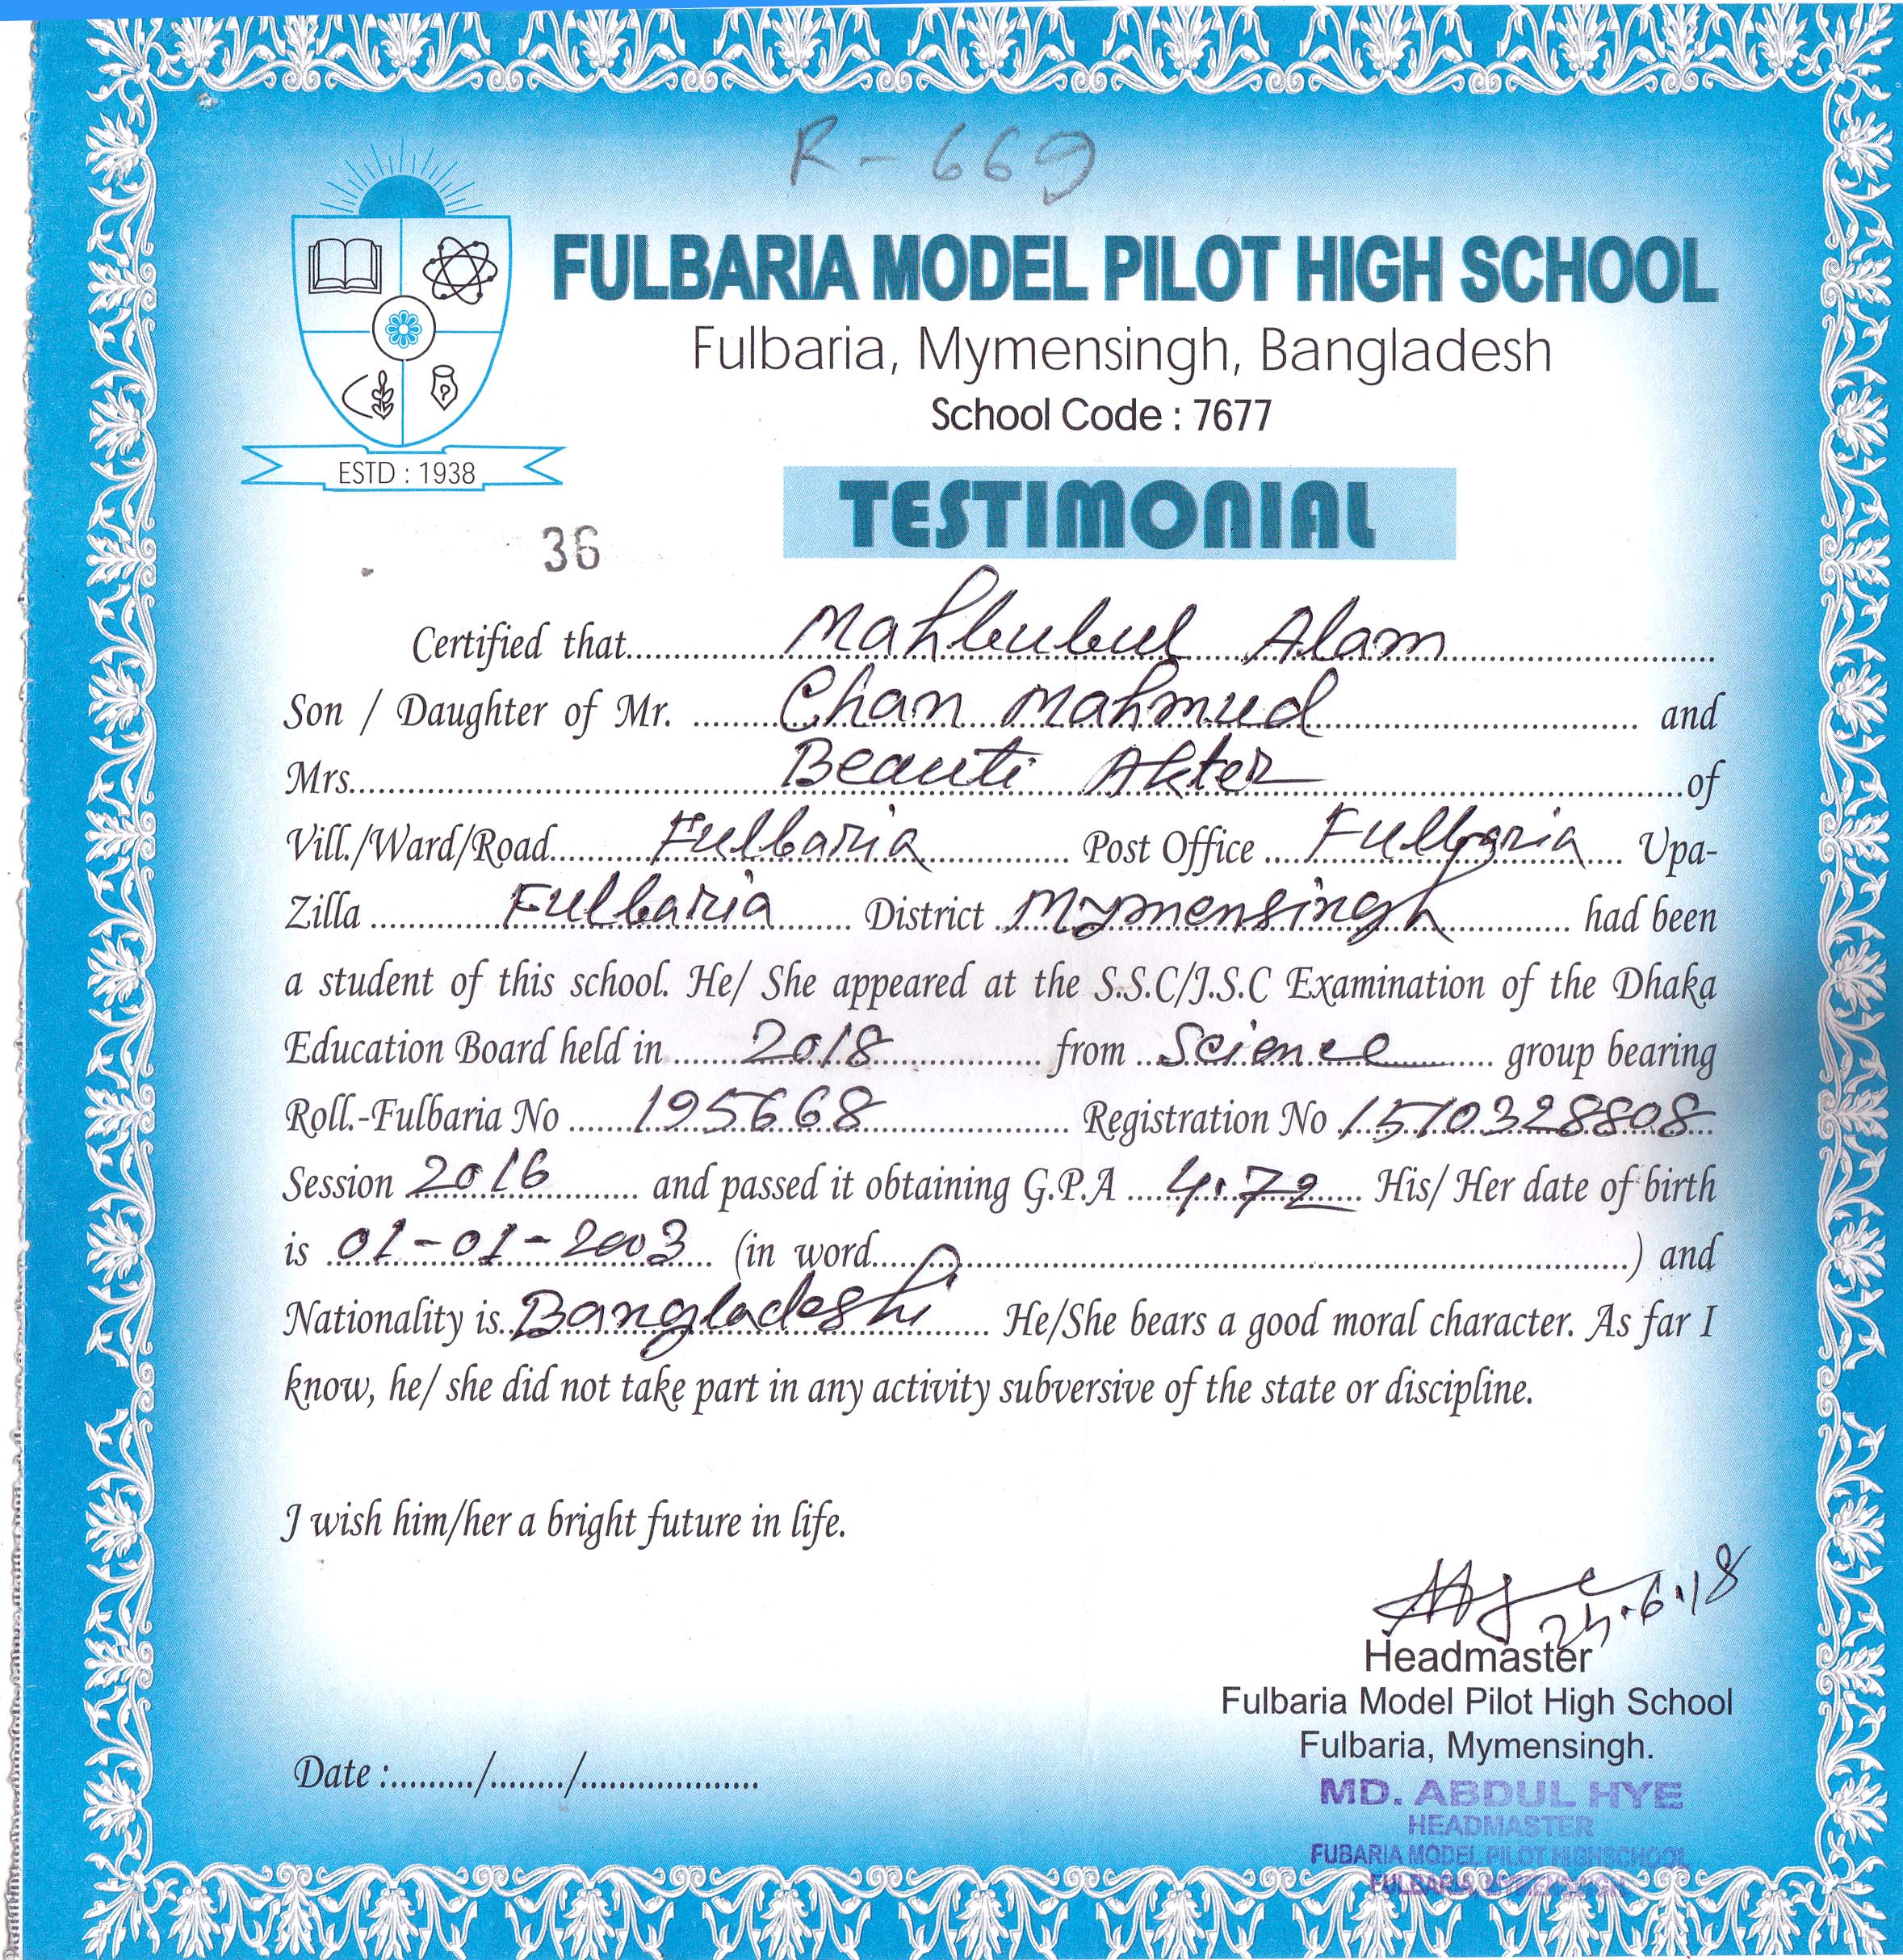 R - 669
FULBARIA MODEL PILOT HIGH SCHOOL
Fulbaria, Mymensingh, Bangladesh
School Code : 7677
ESTD : 1938
TESTIMONIAL
36
Certified that Mahbubul Alam
Son / Daughter of Mr. Chan Mahmud and
Mrs. Beauti Akter of
Vill./Ward/Road Fulbaria Post Office Fulbaria Upa-
Zilla Fulbaria District Mymensingh had been
a student of this school. He/ She appeared at the S.S.C/J.S.C Examination of the Dhaka
Education Board held in 2018 from Science group bearing
Roll.-Fulbaria No 195668 Registration No 1510328808
Session 2016 and passed it obtaining G.P.A 4.72 His/ Her date of birth
is 01-01-2003 (in word) and
Nationality is Bangladeshi He/She bears a good moral character. As far I
know, he/ she did not take part in any activity subversive of the state or discipline.
I wish him/her a bright future in life.
.6.18
Headmaster
Fulbaria Model Pilot High School
Fulbaria, Mymensingh.
Date :......../......../...................
MD. ABDUL HYE
HEADMASTER
FUBARIA MODEL PILOT HIGHSCHOOL
FULBARIA, MYMENSINGH.